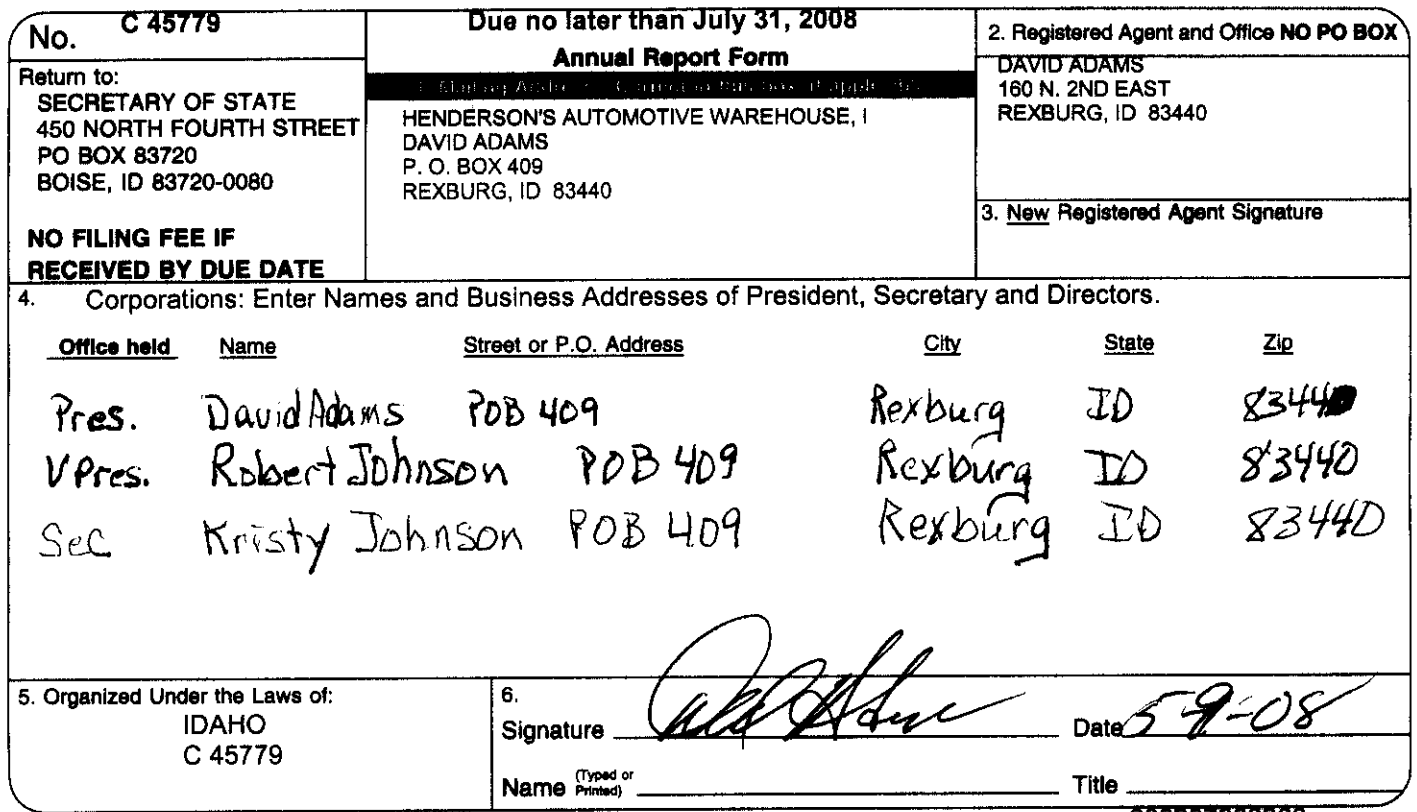 No. C 45779
Return to:
SECRETARY OF STATE
450 NORTH FOURTH STREET
PO BOX 83720
BOISE, ID 83720-0080
NO FILING FEE IF
RECEIVED BY DUE DATE
Due no later than July 31, 2008
Annual Report Form
HENDERSON'S AUTOMOTIVE WAREHOUSE, I
DAVID ADAMS
P. O. BOX 409
REXBURG, ID 83440
2. Registered Agent and Office NO PO BOX
DAVID ADAMS
160 N. 2ND EAST
REXBURG, ID 83440
3. New Registered Agent Signature
4. Corporations: Enter Names and Business Addresses of President, Secretary and Directors.
Office held Name Street or P.O. Address City State Zip
Pres. David Adams POB 409 Rexburg ID 83440
V Pres. Robert Johnson POB 409 Rexburg ID 83440
Sec Kristy Johnson POB 409 Rexburg ID 83440
5. Organized Under the Laws of:
IDAHO
C 45779
6.
Signature Date 5-9-08
Name (Typed or Printed) Title